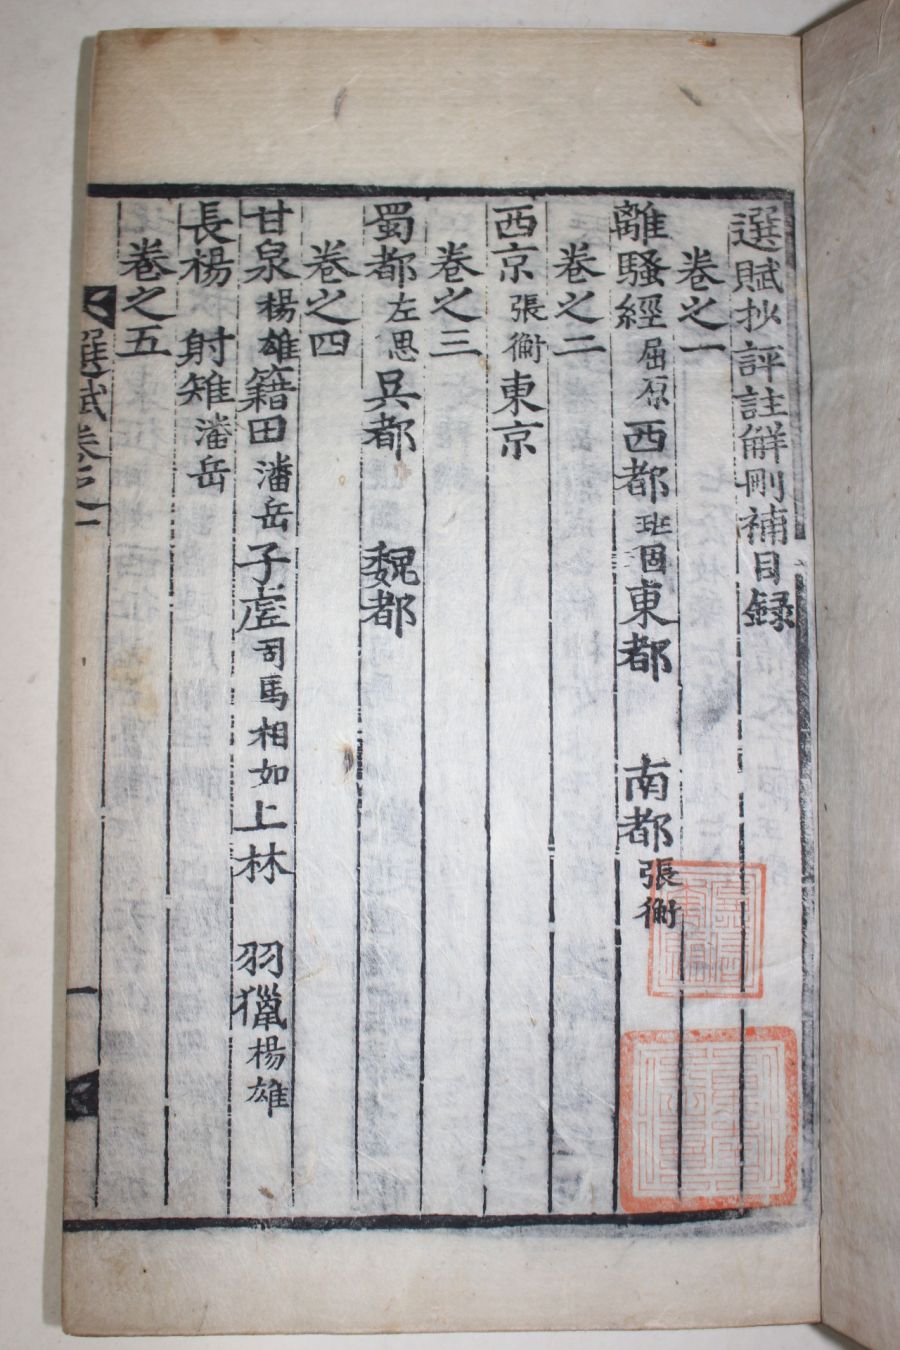 選賦抄評註解刪補目録
卷之一
離騷經 屈原 西都 班固 東都 南都 張衡
卷之二
西京 張衡 東京
卷之三
蜀都 左思 吳都 魏都
卷之四
甘泉 楊雄 籍田 潘岳 子虛 司馬相如 上林 羽獵 楊雄
長楊 射雉 潘岳
卷之五
選賦卷之一